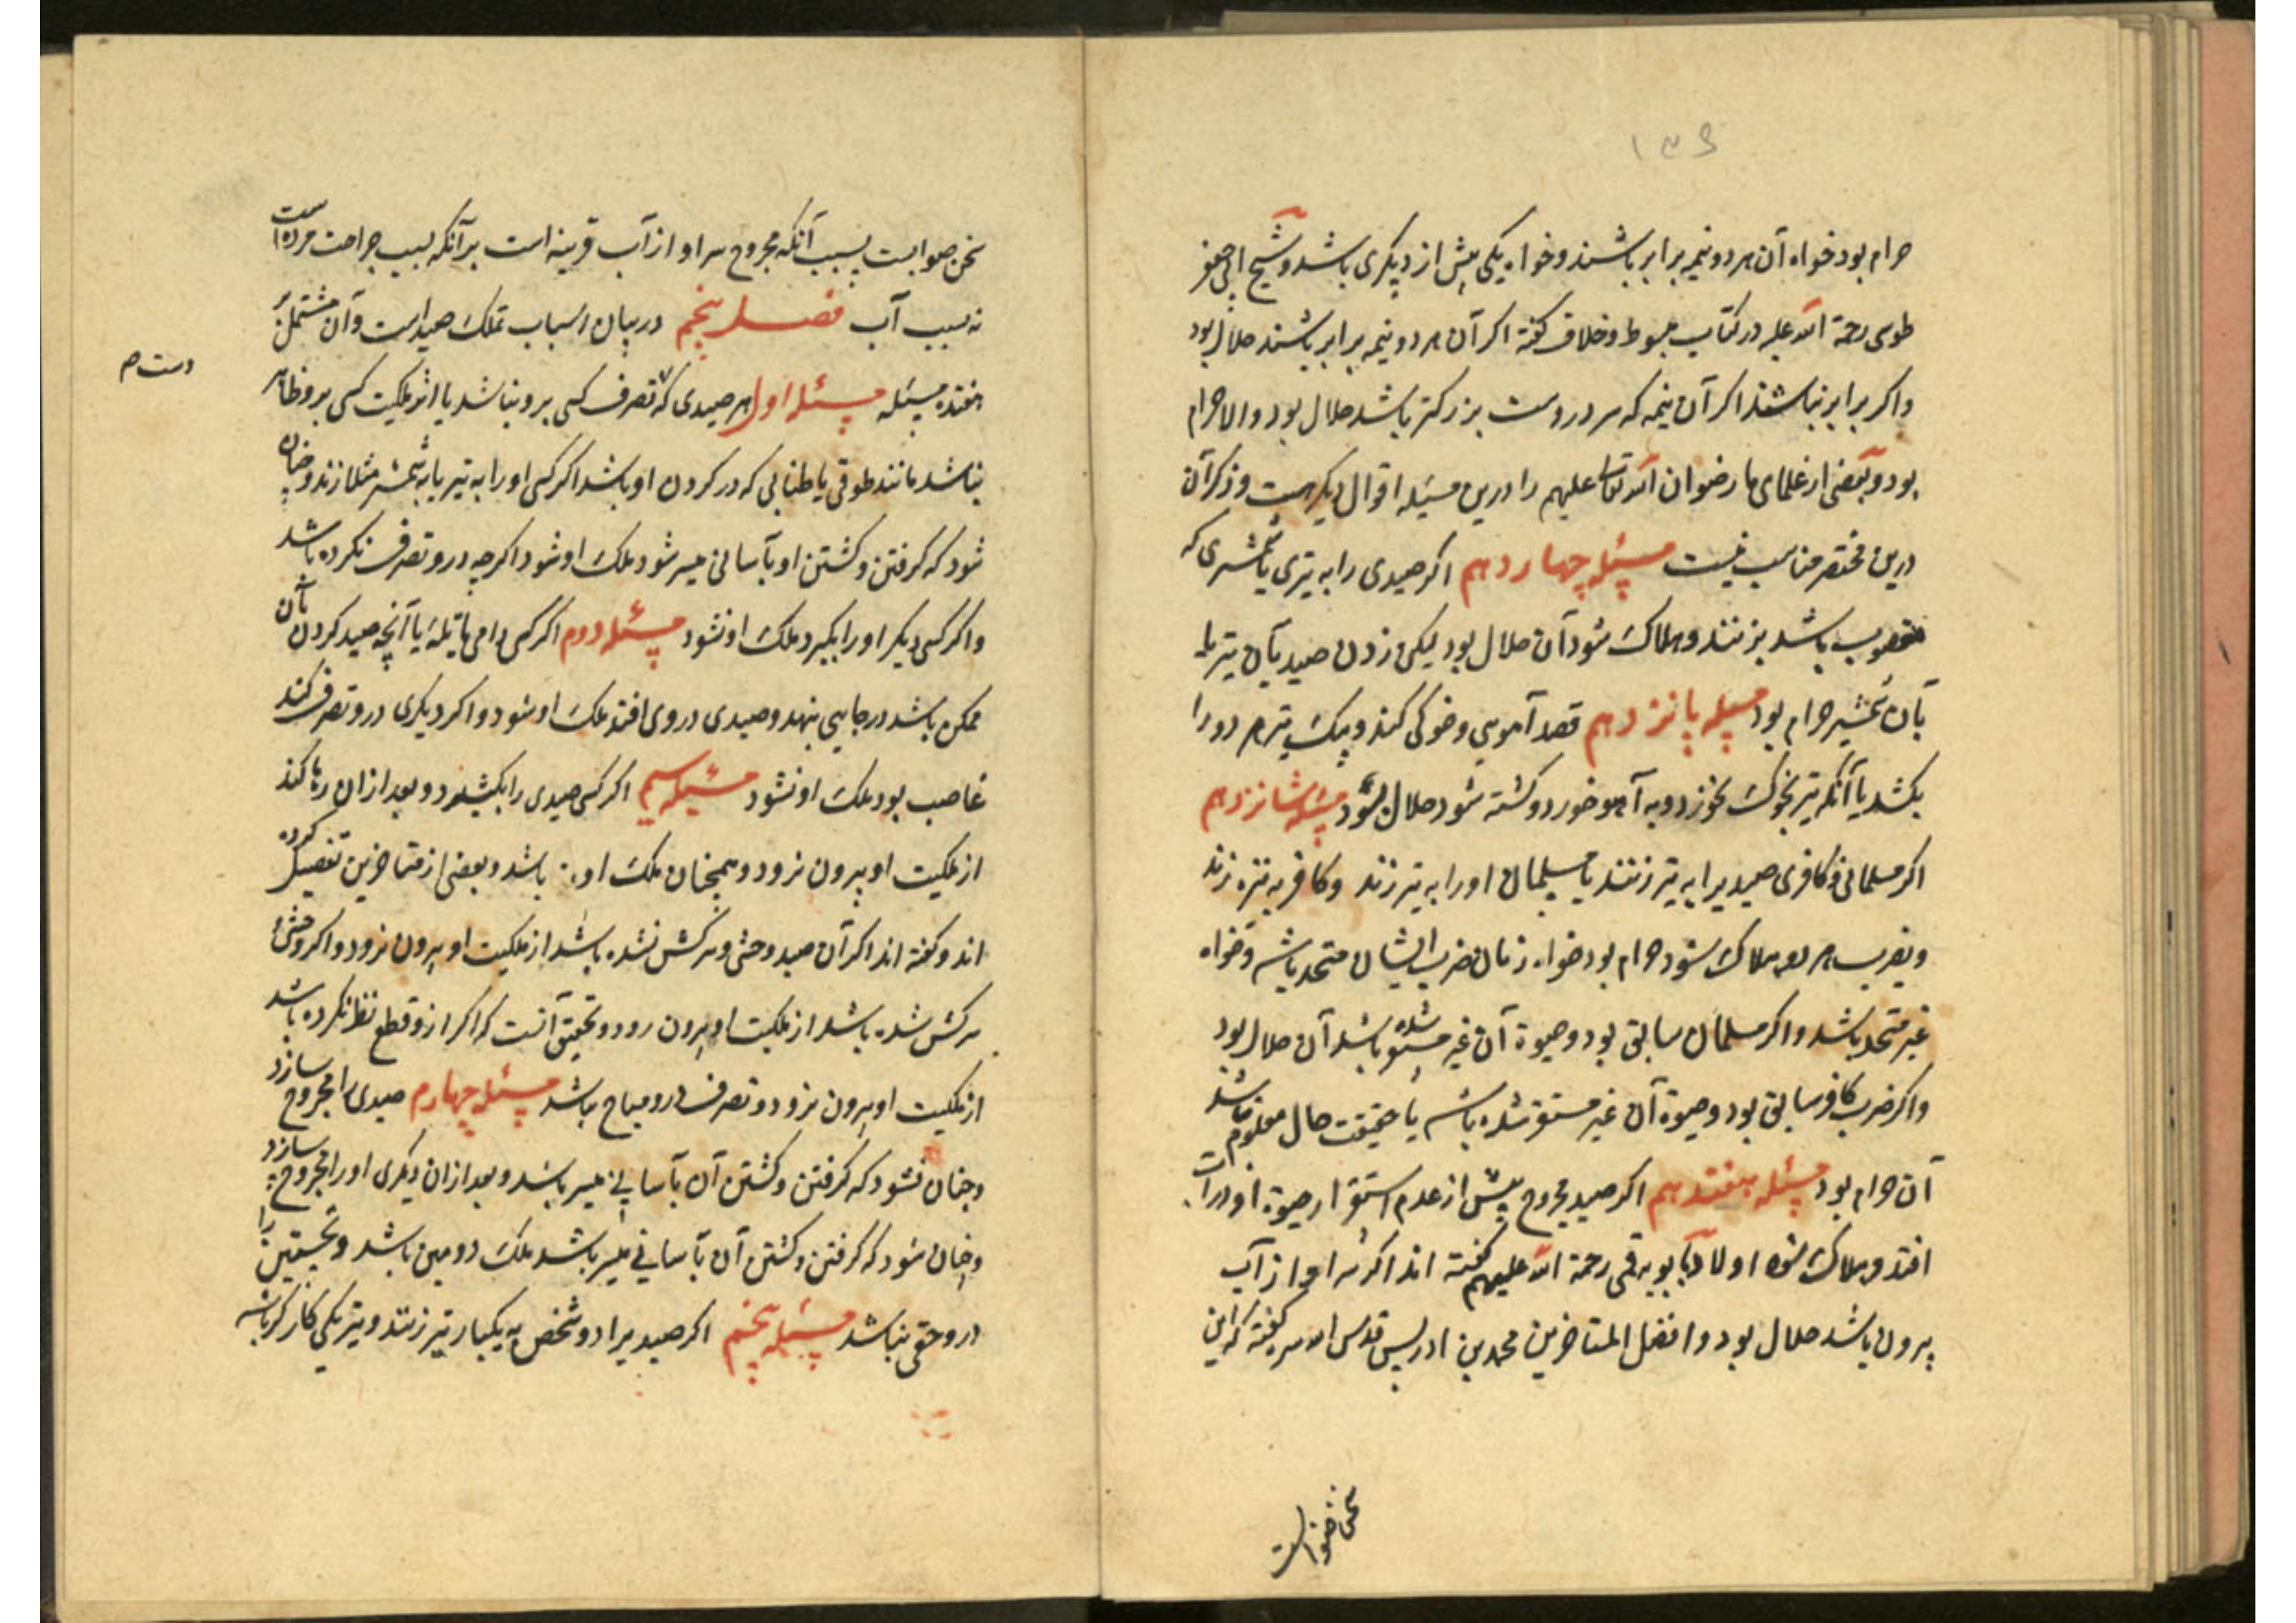 ۱۳۶
حرام بود خواه آن هر دو نیمه برابر باشند و خواه یکی بیش از دیگری باشد و شیخ ابی جعفر
طوسی رحمة الله علیه در کتاب مبسوط و خلاف گفته اگر آن هر دو نیمه برابر باشند حلال بود
واگر برابر نباشند اگر آن نیمه که سر دروست بزرگتر باشد حلال بود والا حرام
بود و بعضی از علمای ما رضوان الله تعالی علیهم را درین مسئله اقوال دیگر هست و ذکر آن
درین مختصر مناسب نیست مسئله چهاردهم اگر صیدی را به تیری یا شمشیری که
مغصوب باشد بزنند و هلاک شود آن حلال بود لیکن زدن صید بآن تیر یا
بآن شمشیر حرام بود مسئله پانزدهم قصد آهویی و خوکی کند و بیک تیر هر دو را
بکشد یا آنکه تیر بخوک نخورد و به آهو خورد و کشته شود حلال بود مسئله شانزدهم
اگر مسلمانی و کافری صید یرا به تیر زنند یا مسلمان او را به تیر زند و کافر به نیزه زند
و بضرب هر دو هلاک شود حرام بود خواه زمان ضرب ایشان متحد باشد و خواه
غیر متحد باشد واگر مسلمان سابق بود و حیوة آن غیر مستقر شده باشد آن حلال بود
واگر ضرب کافر سابق بود و حیوة آن غیر مستقر شده باشد یا حقیقت حال معلوم نباشد
آن حرام بود مسئله هفتدهم اگر صید مجروح پیش از عدم استقرار حیوة او در آب
افتد و هلاک شود اولاد بابویه قمی رحمة الله علیهم گفته اند اگر سر او از آب
بیرون باشد حلال بود و افضل المتاخرین محمد بن ادریس قدس سره گفته که این
سخن صوابست
سخن صوابست بسبب آنکه مجروح سر او از آب قرینه است بر آنکه بسبب جراحت مرده است
نه بسبب آب فصل پنجم در بیان اسباب تملک صید است و آن مشتمل بر
هفده مسئله مسئله اول هر صیدی که تصرف کسی برو نباشد یا اثر ملکیت کسی برو ظاهر
دست ص
نباشد مانند طوقی یا طنابی که در گردن او باشد اگر کسی او را به تیر یا به شمشیر مثلا زند و چنان
شود که گرفتن و کشتن او بآسانی میسر شود ملک او شود اگرچه درو تصرف نکرده باشد
واگر کسی دیگر او را بگیرد ملک او نشود مسئله دوم اگر کسی دامی یا تله یا آنچه صید کردن بآن
ممکن باشد در جایی بنهد و صیدی در وی افتد ملک او شود و اگر دیگری درو تصرف کند
غاصب بود ملک او نشود مسئله سیم اگر کسی صیدی را بکشد و بعد از آن رها کند
از ملکیت او بیرون نرود و همچنان ملک او باشد و بعضی از متاخرین تفصیل کرده
اند و گفته اند اگر آن صید وحشی و سرکش نشده باشد از ملکیت او بیرون نرود واگر وحشی و
سرکش شده باشد از ملکیت او بیرون رود و تحقیق آنست که اگر ازو قطع نظر نکرده باشد
از ملکیت او بیرون نرود و تصرف درو مباح باشد مسئله چهارم صیدی را مجروح سازد
و چنان نشود که گرفتن و کشتن آن بآسانی میسر باشد و بعد از آن دیگری او را مجروح سازد
و چنان شود که گرفتن و کشتن آن بآسانی میسر باشد ملک دومین باشد و نخستین را
درو حقی نباشد مسئله پنجم اگر صید یرا دو شخص به یکبار تیر زنند و تیر یکی کارگر باشد